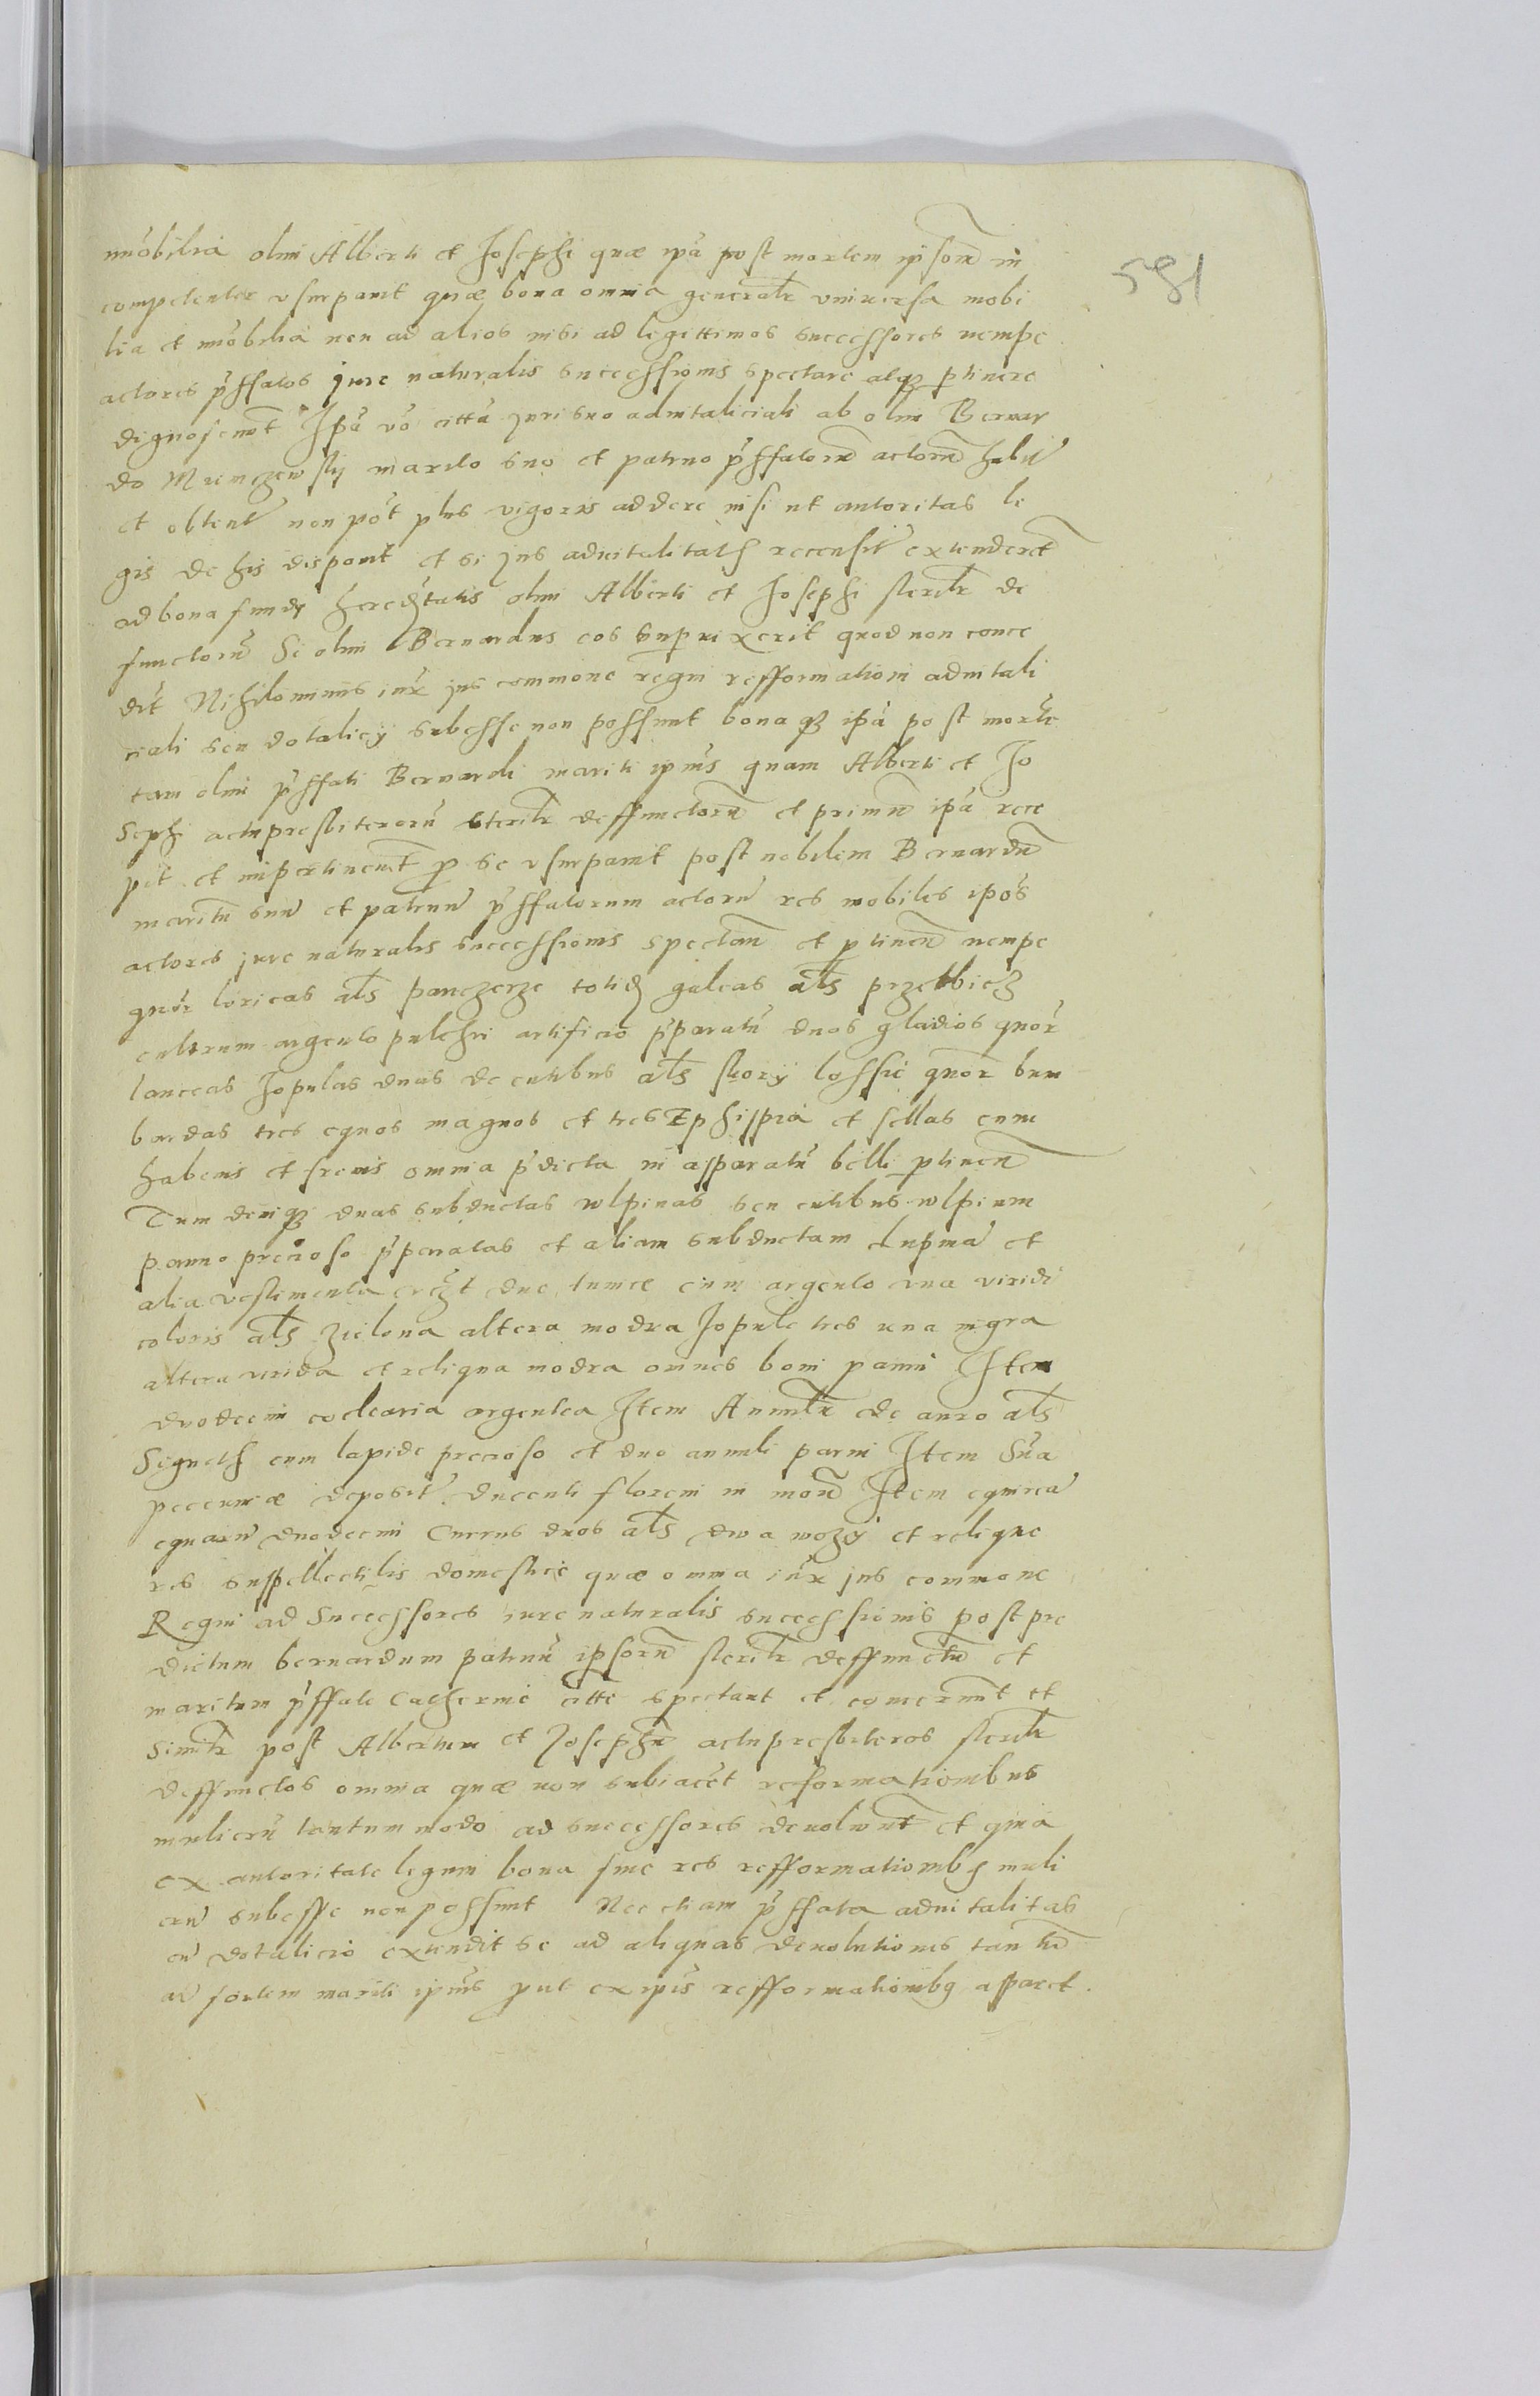 im̄obilia olim Alberti et Josephi quæ ipā post mortem ipsorū in
competenter vsurpavit quæ bona omnia generalr̄ vniuersa mobi
lia et im̄obilia non ad alios nisi ad legittimos successores nempe
actores p̄ffatos jure naturalis successionis spectare atq₃ ptinere
dignoscunt̄ Ipā vō citta juri suo aduitaliciali ab olim Bernar
do marito suo et patruo p̄ffatorū actorū habit̄
et obtent̄ non pōt plus vigoris addere nisi ut autoritas le
gis de his disponit et si jus aduitalitatis recensit̄ extenderet̄
ad bona fundi hereditatis olim Alberti et Josephi sterilr̄ de
functorū Si olim Bernardus eos supvixerit quod non conce
dit̄ Nihilominus iux̄ jus commone regni refformationi aduitali
ciali seu dotalicy subesse non possunt bona q₃ ipā post morte
tam olim p̄ffati Bernardi mariti ipius quam Alberti et Jo
sephi actupresbiterorū sterilr̄ deffunctorū et primū ipā rece
pit et impertinent̄ p se vsurpavit post nobilem Bernardū
maritū suū et patruū p̄ffatorum actorū res mobiles ipōs
actores jure naturalis successionis spectan̄ et ptinen̄ nempe
quōr loricas als̄ panczerze totid galeas als̄ przelbicz
cultrum argento pulchri artificio p̄paratū duos gladios quōr
lanceas Jopulas duas de cutibus als̄ skory lossie quor bom
bardas tres equos magnos et tres Ephippia et sellas cum
habenis et frenis omnia p̄dicta in apparatū belli ptinen̄
Tum deniq₃ duas subductas wlpinas seu cutibus wlpium
panno precioso p̄paratas et aliam subductam lupinā et
alia vestimenta due tunice cum argento una viridi
coloris als̄ zielona altera modra Jopule tres una nigra
altera virida et reliqua modra omnes boni panni Item
duodecim coclearia argentea Item Annulū de auro als̄
Signeth cum lapide precioso et duo annuli parvi Item Sūa
pecuniæ deposit̄ ducenti floreni in mon̄ Item equirea
equarū duodecim Currus duos als̄ dwa wozy et relique
res suppellectilis domestice quæ omnia iux̄ jus commone
Regni ad Successores iure naturalis successionis post pre
dictum bernardum patruū ipsorū sterilr̄ deffunctū et
maritum p̄ffate Catherine citte spectant et concernunt et
Similr̄ post Albertum et Josephū actupresbiteros sterilr̄
deffunctos omnia quæ non subiacet reformationibus
mulierū tantummodo ad successores devolvunt̄ et quia
ex autoritate legum bona sine res refformationibs muli
erū subesse non possunt Nec etiam p̄ffata aduitalitas
cū dotalicio extendit se ad aliquas devolutiones tan tū
ad sortem mariti ipius put ex ipis refformationibq apparet.
581